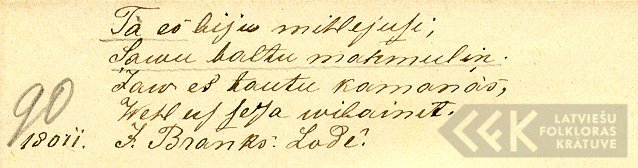 Tà eś biju mihlejuſi;
Sawu baltu mahmulin.
Law eś tautu kamanàs,
Wehl uſ ſeja wibainit.
90
18011. J. Branks. Lodê.
LATVIEŠU
FOLKLORAS
KRĀTUVE